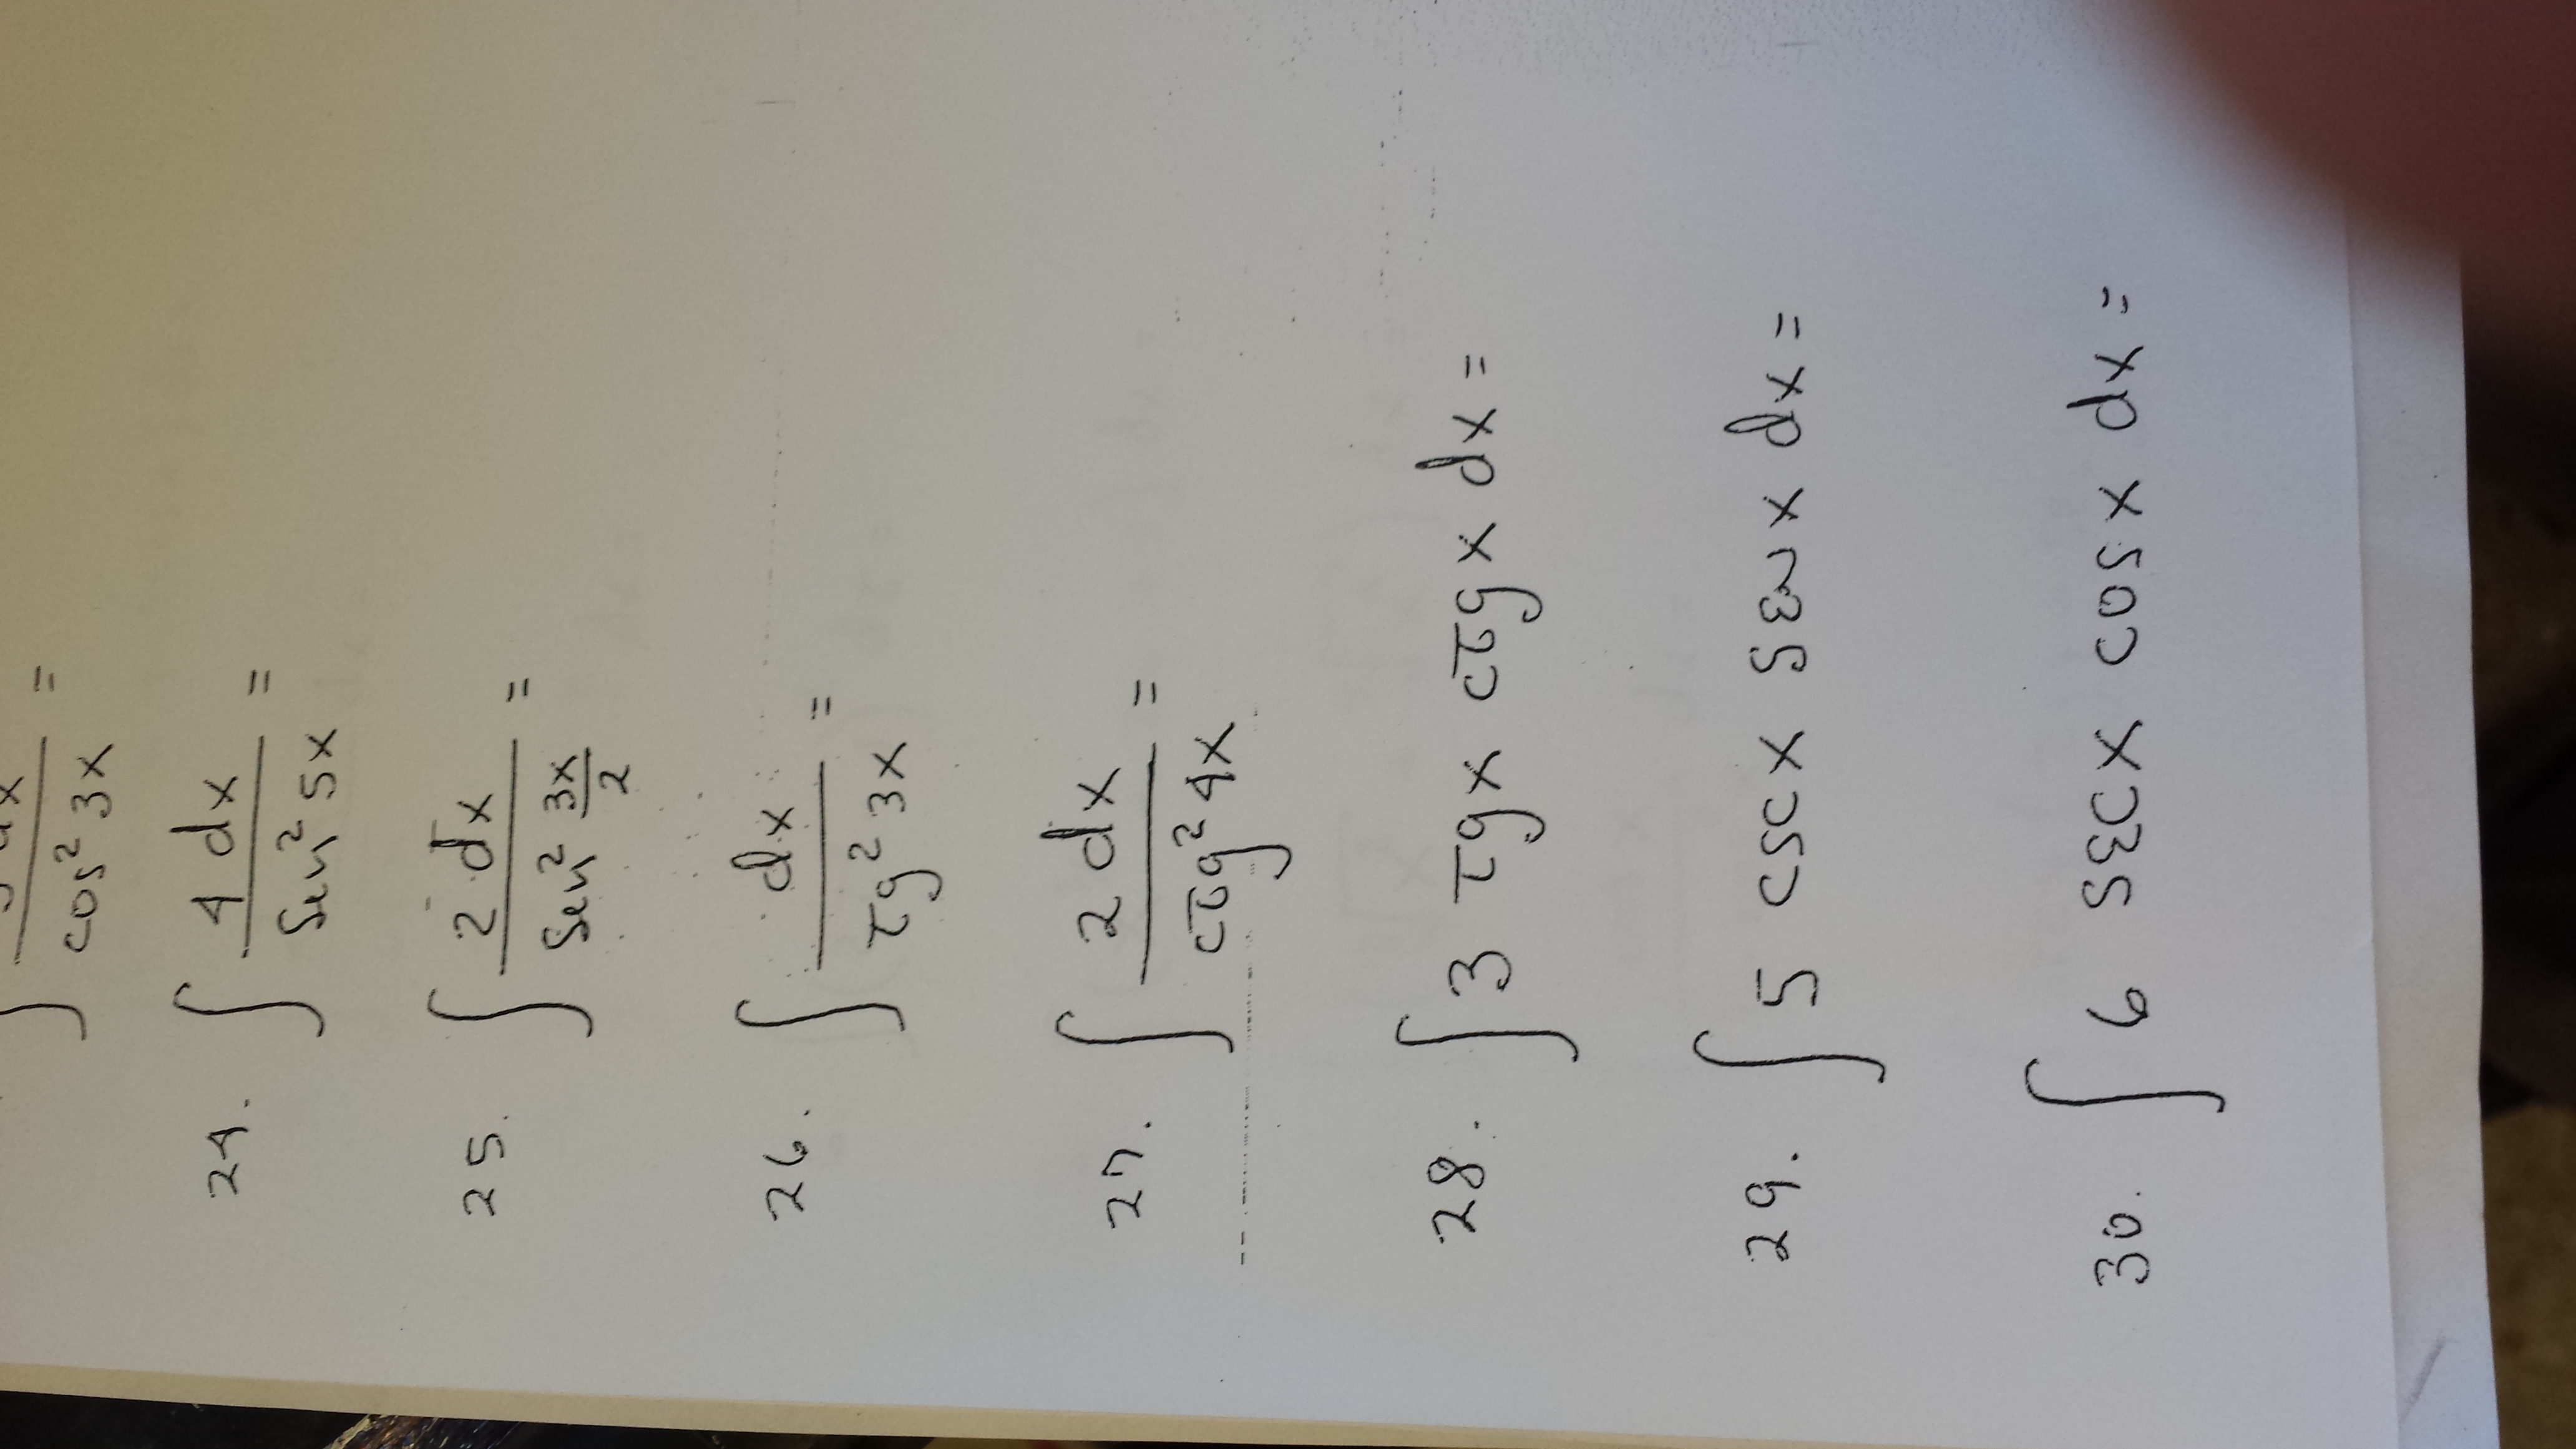 ∫ dx / cos² 3x =
24. ∫ 4 dx / Sen² 5x =
25. ∫ 2 dx / Sen² 3x/2 =
26. ∫ dx / Tg² 3x =
27. ∫ 2 dx / cTg² 4x =
28. ∫ 3 Tgx cTgx dx =
29. ∫ 5 cscx senx dx =
30. ∫ 6 secx cosx dx =